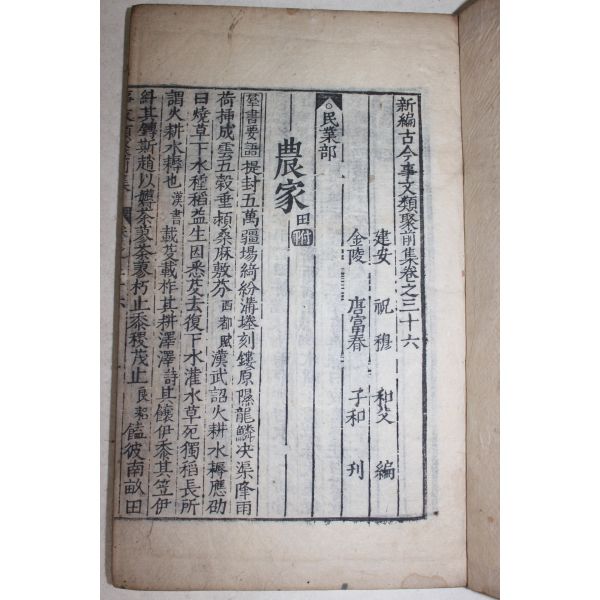 新編古今事文類聚前集卷之三十六
建安 祝穆 和父 編
金陵 唐富春 子和 刋
民業部
農家 田附
羣書要語 提封五萬疆場綺紛溝塍刻鏤原隰龍鱗决渠降雨
荷揷成雲五穀垂穎桑麻敷芬 西都賦 漢武詔火耕水耨應劭
曰燒草下水種稻益生因悉芟去復下水灌水草死獨稻長所
謂火耕水耨也 漢書 載芟載柞其耕澤澤 詩 其饟伊黍其笠伊
糾其鎛斯趙以薅荼蓼荼蓼朽止黍稷茂止 良耜 饁彼南畝田